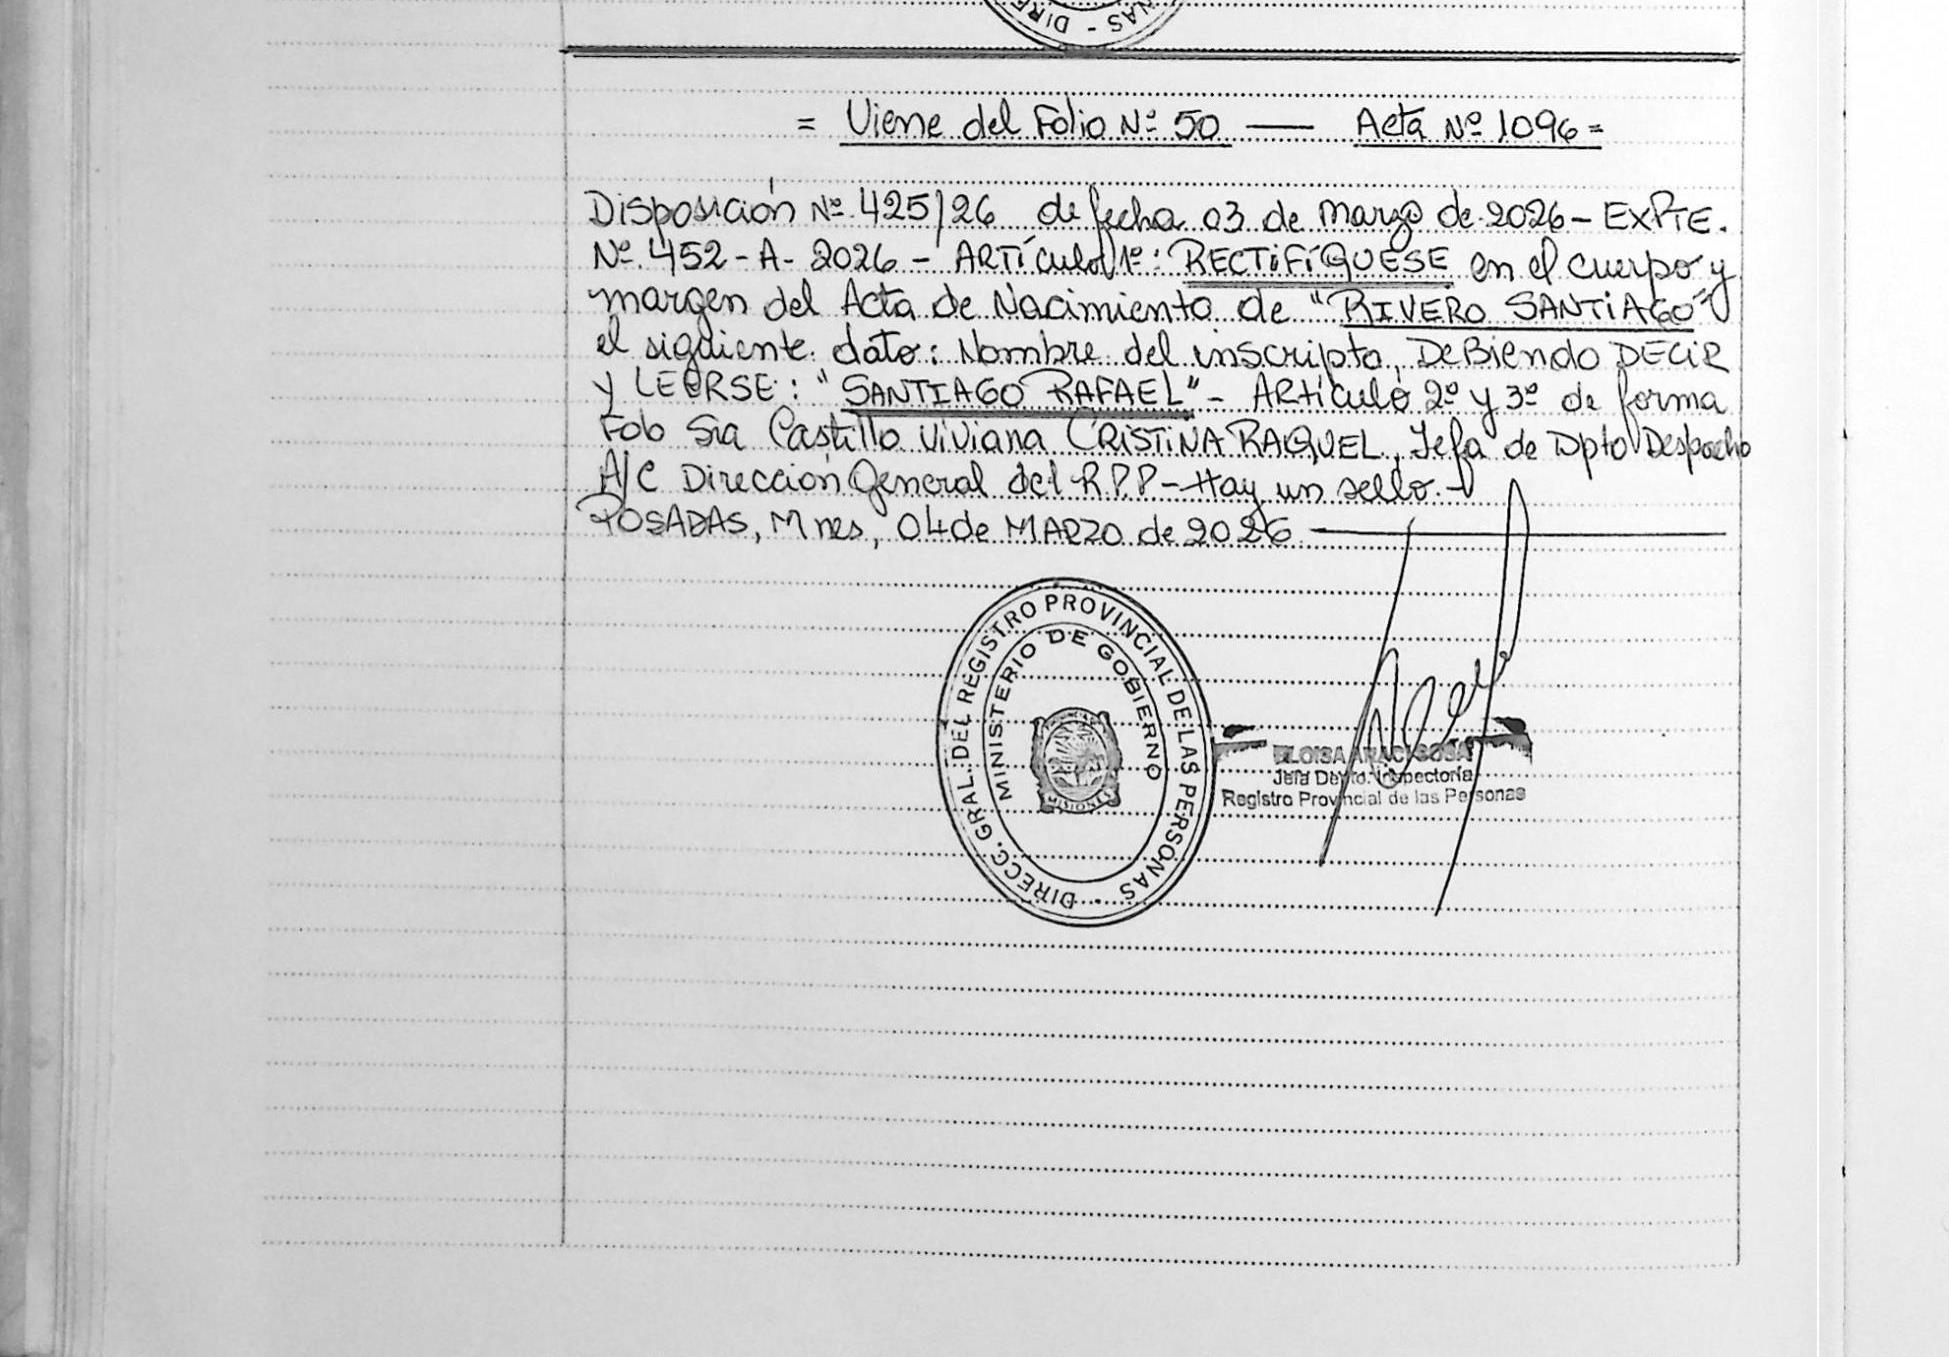 DIRE - NAS
= Viene del Folio Nº 50 — Acta Nº 1096 =
Disposición Nº 425/26 de fecha 03 de Marzo de 2026 - EXPTE.
Nº 452 - A - 2026 - ARTÍCULO 1º: RECTIFÍQUESE en el cuerpo y
margen del Acta de Nacimiento de "RIVERO SANTIAGO"
el siguiente dato: Nombre del inscripto, DEBIENDO DECIR
y LEERSE: "SANTIAGO RAFAEL" - Artículo 2º y 3º de forma
Fdo Sra Castillo Viviana CRISTINA RAQUEL, Jefa de Dpto Despacho
A/C Dirección General del R.P.P - Hay un sello. -
POSADAS, Mnes, 04 de MARZO de 2026
DIRECC. GRAL. DEL REGISTRO PROVINCIAL DE LAS PERSONAS
MINISTERIO DE GOBIERNO
MISIONES
ELOISA ARACI SOSA
Jefa Depto. Inspectoría
Registro Provincial de las Personas